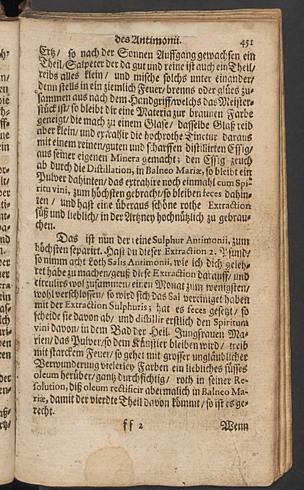 des Antimonii. 451
Ertz/ so nach der Sonnen Auffgang gewachsen ein
Theil/ Salpeter der da gut und reine ist auch ein Theil/
reibs alles klein/ und mische solchs unter einander/
denn stells in ein ziemlich Feuer/ brenns oder glües zu-
sammen aus nach dem Handgriff/ welchs das Meister-
stück ist/ so bleibet dir eine Materia zur braunen Farbe
geneigt/ die mach zu einem Glase/ dasselbe Glaß reib
aber klein/ und extrahir die hochrothe Tinctur daraus
mit einem reinen/ guten und scharffen distillirten Essig/
aus seiner eigenen Minera gemacht: den Essig zeuch
ab durch die Distillation, in Balneo Mariæ, so bleibt ein
Pulver dahinten/ das extrahire noch einmahl cum Spi-
ritu vini, zum höchsten gebracht/ so bleiben feces dahin-
ten/ und hast eine überaus schöne rothe Extraction
süß und lieblich/ in der Artzney hochnützlich zu gebrau-
chen.
Das ist nun der reine Sulphur Antimonii, zum
höchsten separirt. Hast du dieser Extraction 2. Pfund/
so nimm acht Loth Salis Antimonii, wie ich dich geleh-
ret habe zu machen/ geuß diese Extraction darauff/ und
circulirs wol zusammen/ einen Monat zum wenigsten/
wohl verschlossen/ so wird sich das Sal vereiniget haben
mit der Extraction Sulphuris; hat es feces gesetzt/ so
scheide sie davon ab/ und distillir erstlich den Spiritum
vini davon/ in dem Bad der Heil. Jungfrauen Ma-
rien/ das Pulver/ so dem Künstler bleiben wird/ treib
mit starckem Feuer/ so gehet mit grosser unglaublicher
Verwunderung vielerley Farben ein liebliches süsses
oleum herüber/ gantz durchsichtig/ roth in seiner Re-
solution, diß oleum rectificir abermalich in Balneo Ma-
riæ, damit der vierdte Theil davon kömmt/ so ist es ge-
recht.
ff 2 Wenn